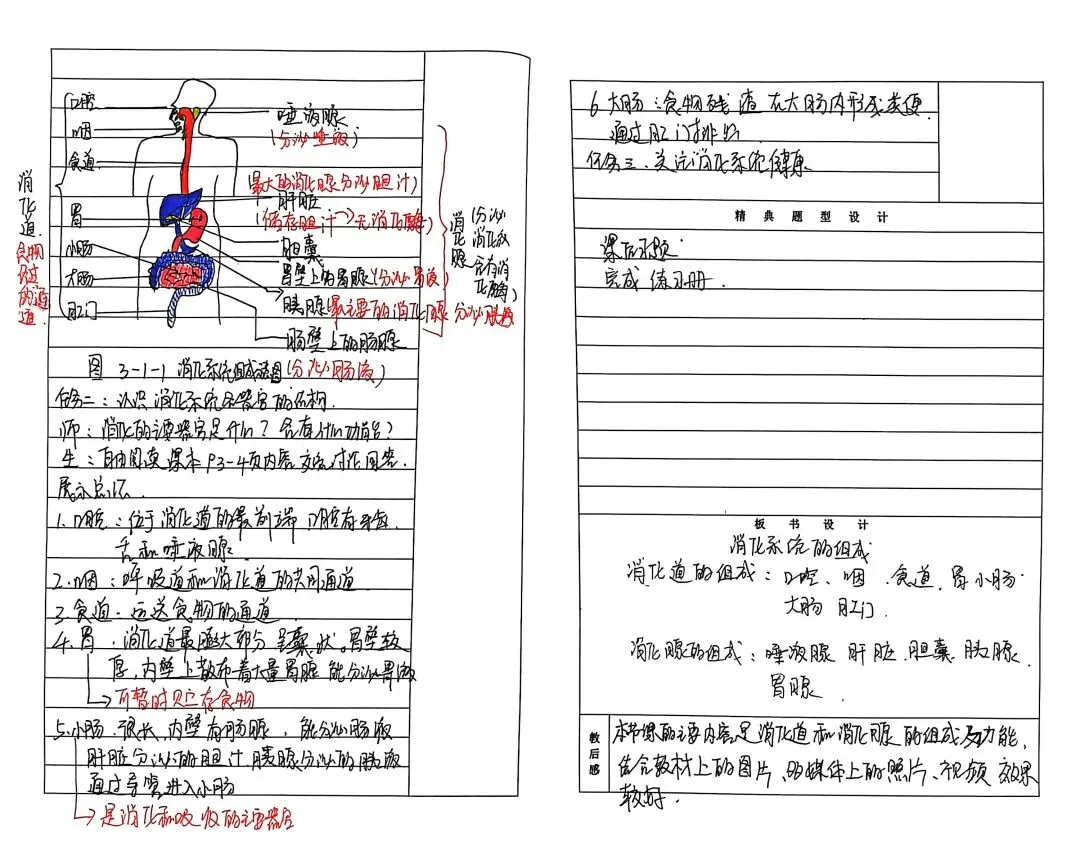 口腔
咽
食道
胃
小肠
大肠
肛门
消化道
食物经过的通道
唾液腺
(分泌唾液)
(最大的消化腺分泌胆汁)
肝脏
(储存胆汁→无消化酶)
胆囊
胃壁上的胃腺(分泌胃液)
胰腺(最主要的消化腺 分泌胰液)
肠壁上的肠腺
(分泌肠液)
消化腺
(分泌消化液含有消化酶)
图 3-1-1 消化系统组成
任务二:认识消化系统各器官的结构.
师:消化的主要器官是什么?各有什么功能?
生:自由阅读课本P3-4页内容交流讨论回答.
展示总结.
1.口腔:位于消化道的最前端 口腔有牙齿.
舌和唾液腺.
2.咽:呼吸道和消化道的共同通道
3.食道:运送食物的通道.
4.胃:消化道最膨大部分 呈囊状。胃壁较
厚,内壁上散布着大量胃腺 能分泌胃液
→可暂时贮存食物
5.小肠.很长,内壁有肠腺,能分泌肠液
肝脏分泌的胆汁.胰腺分泌的胰液
通过导管进入小肠
→是消化和吸收的主要器官
6.大肠:食物残渣在大肠内形成粪便.
通过肛门排出
任务三.关注消化系统健康
精典题型设计
课后习题
完成练习册.
板书设计
消化系统的组成
消化道的组成:口腔、咽.食道.胃小肠.
大肠 肛门.
消化腺的组成:唾液腺 肝脏.胆囊.胰腺.
胃腺.
教后感
本节课的主要内容是消化道和消化腺的组成及功能,
结合教材上的图片、多媒体上的照片、视频 效果
较好.